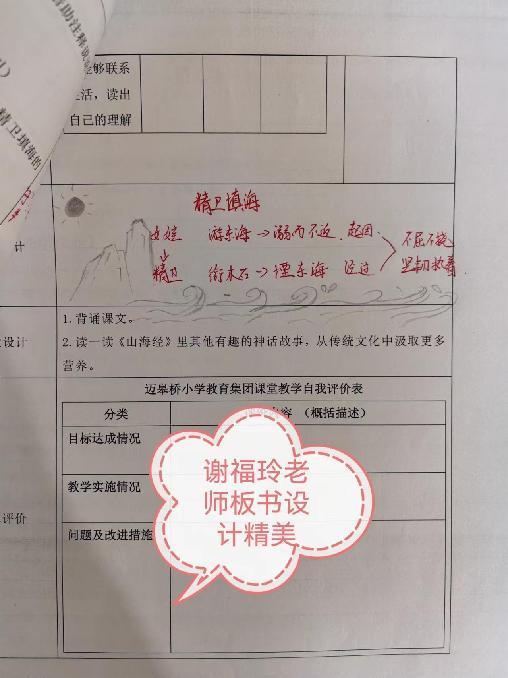 能够联系
生活，读出
自己的理解
精卫填海的
精卫填海
女娃 游东海→溺而不返 起因
不屈不挠
坚韧执着
精卫 衔木石→堙东海 经过
计
设计
1.背诵课文。
2.读一读《山海经》里其他有趣的神话故事，从传统文化中汲取更多
营养。
迈皋桥小学教育集团课堂教学自我评价表
分类
内容 （概括描述）
目标达成情况
教学实施情况
评价
问题及改进措施
谢福玲老
师板书设
计精美